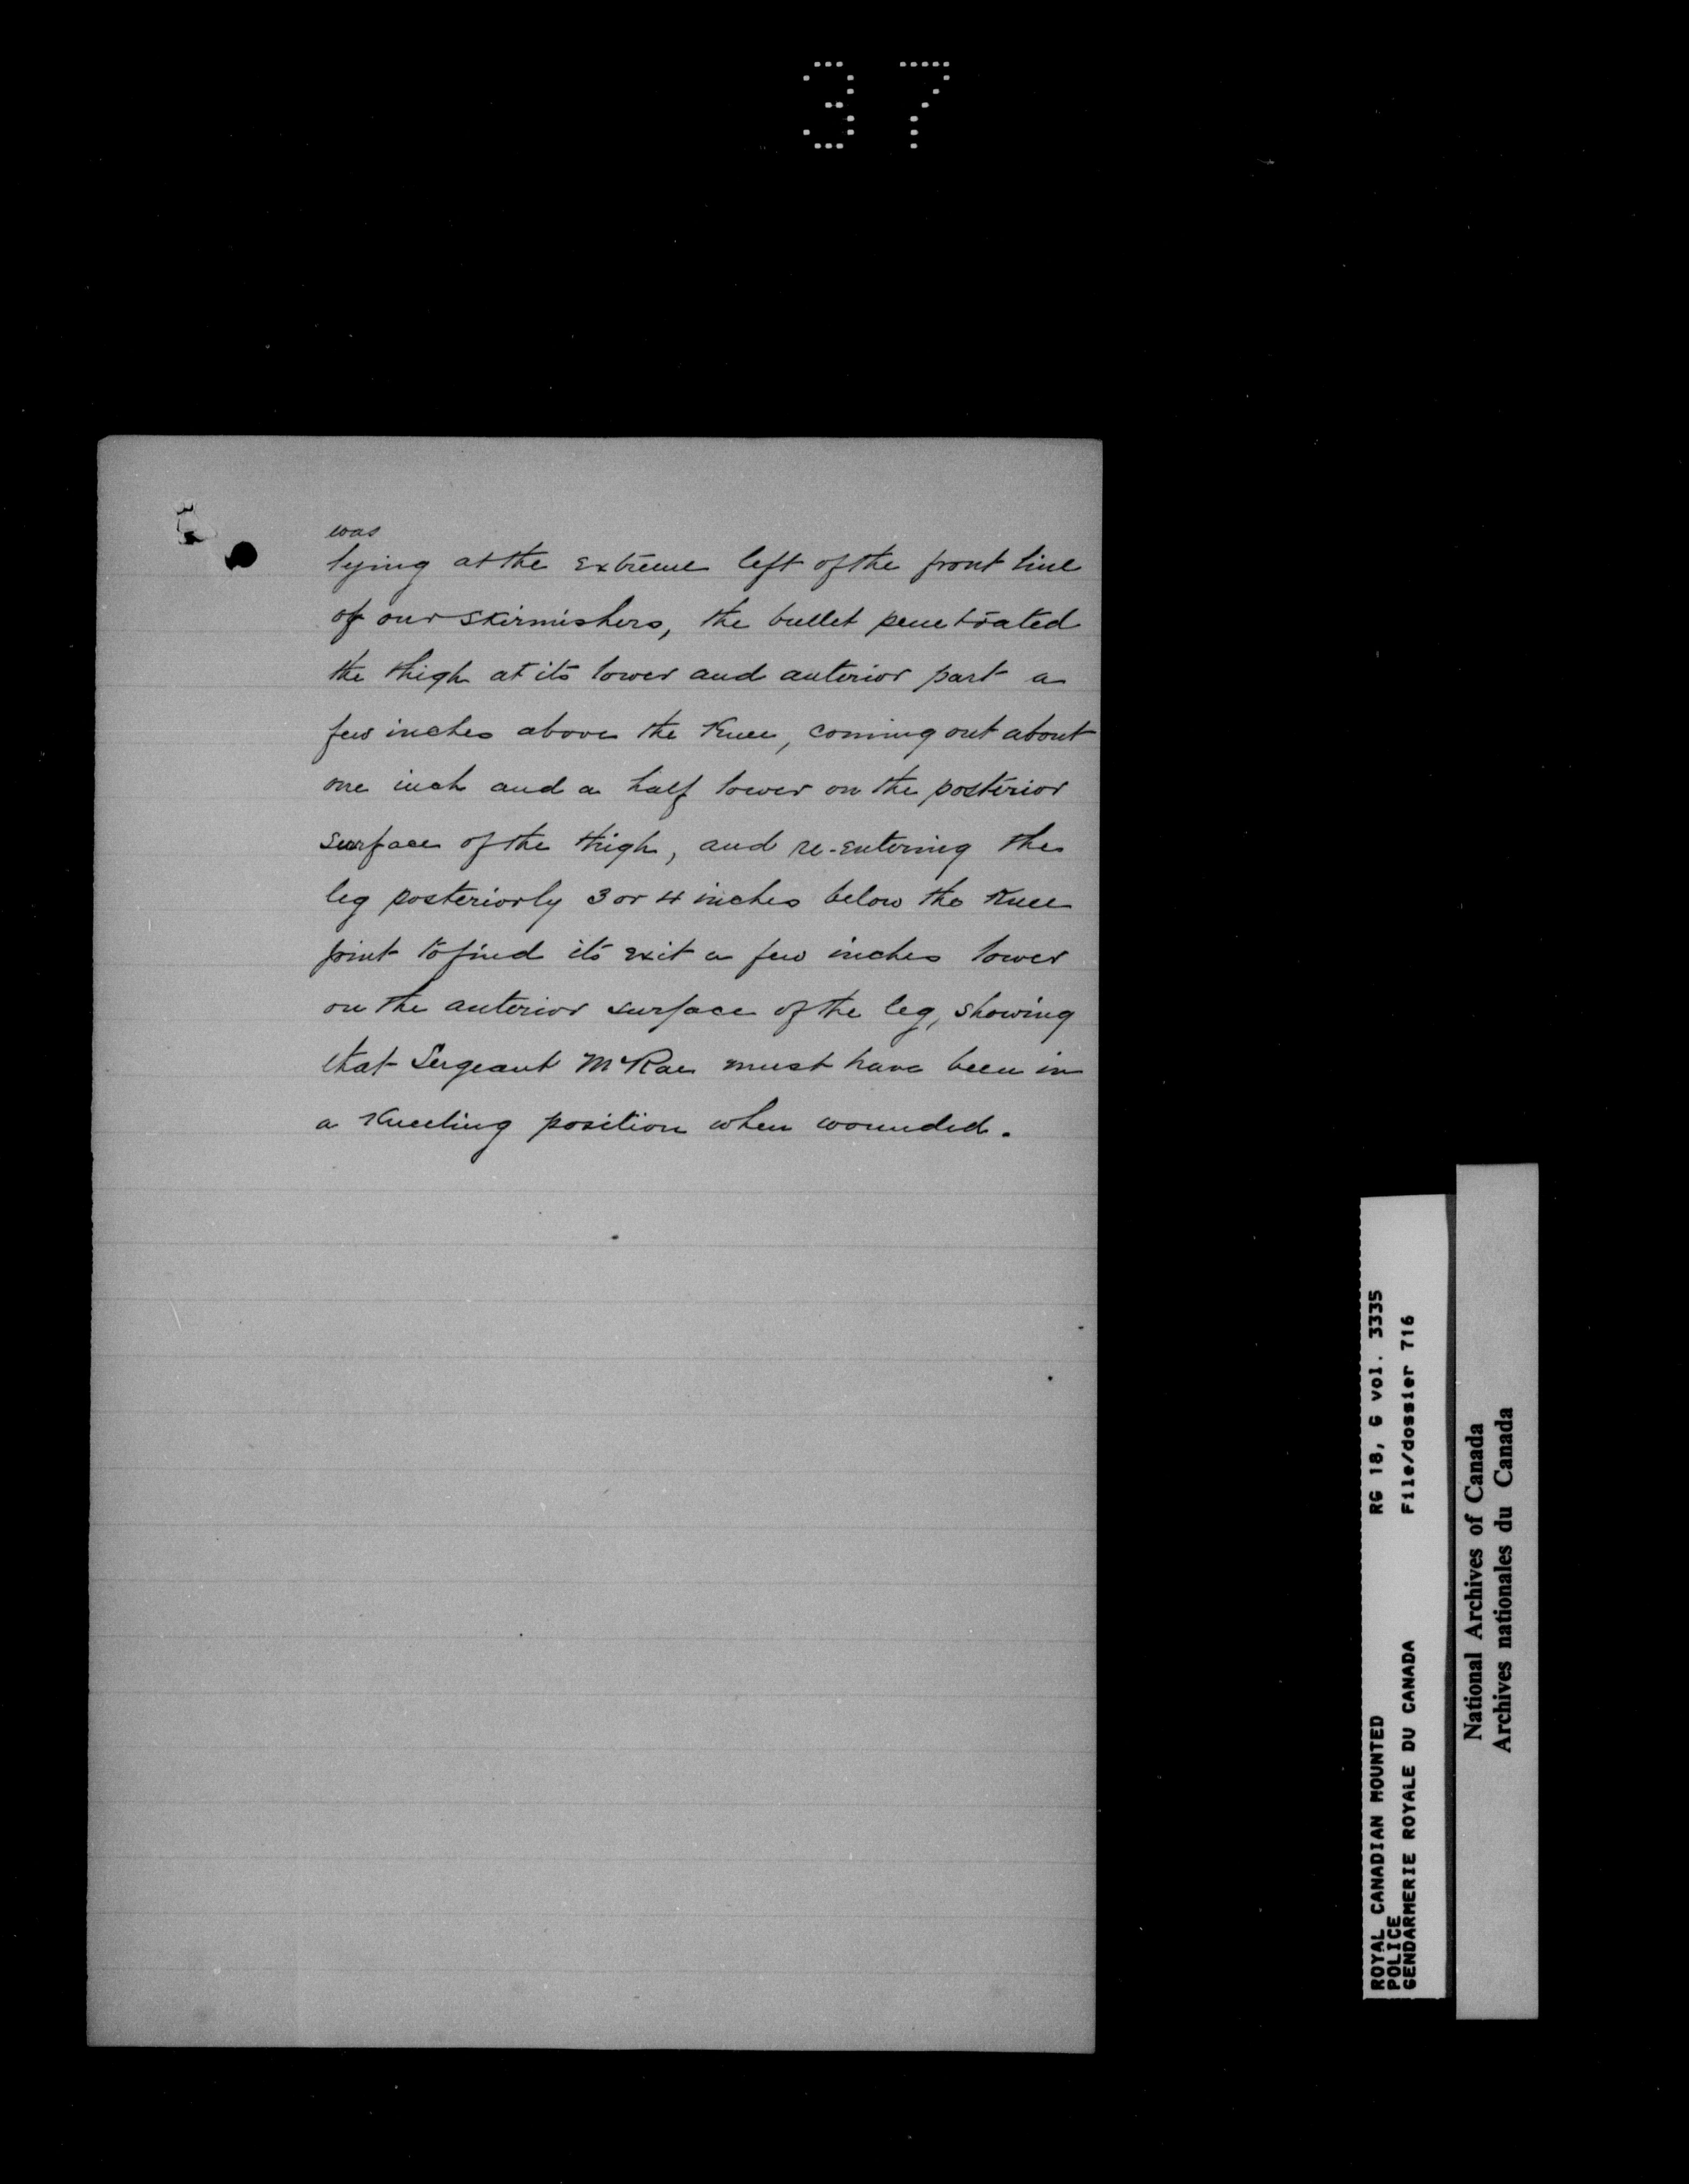 37
was
lying at the extreme left of the front line
of our skirmishers, the bullet penetrated
the thigh at its lower and anterior part a
few inches above the Knee, coming out about
one inch and a half lower on the posterior
surface of the thigh, and re-entering the
leg posteriorly 3 or 4 inches below the Knee
joint to find its exit a few inches lower
on the anterior surface of the leg, showing
that Sergeant McRae must have been in
a Kneeling position when wounded.
ROYAL CANADIAN MOUNTED RG 18, G vol. 3335
POLICE
GENDARMERIE ROYALE DU CANADA File/dossier 716
National Archives of Canada
Archives nationales du Canada